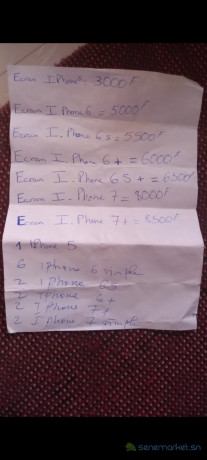 Ecran I Phone 3000F
Ecran I Phone 6 = 5000F
Ecran I. Phone 6s = 5500F
Ecran I. Phone 6+ = 6000F
Ecran I. Phone 6S+ = 6500F
Ecran I. Phone 7 = 8000F
Ecran I. Phone 7+ = 8500F
1 iPhone 5
6 iphone 6 simple
2 iPhone 6S
2 iphone 6+
2 I Phone 7+
2 I Phone 7 simple
senemarket.sn